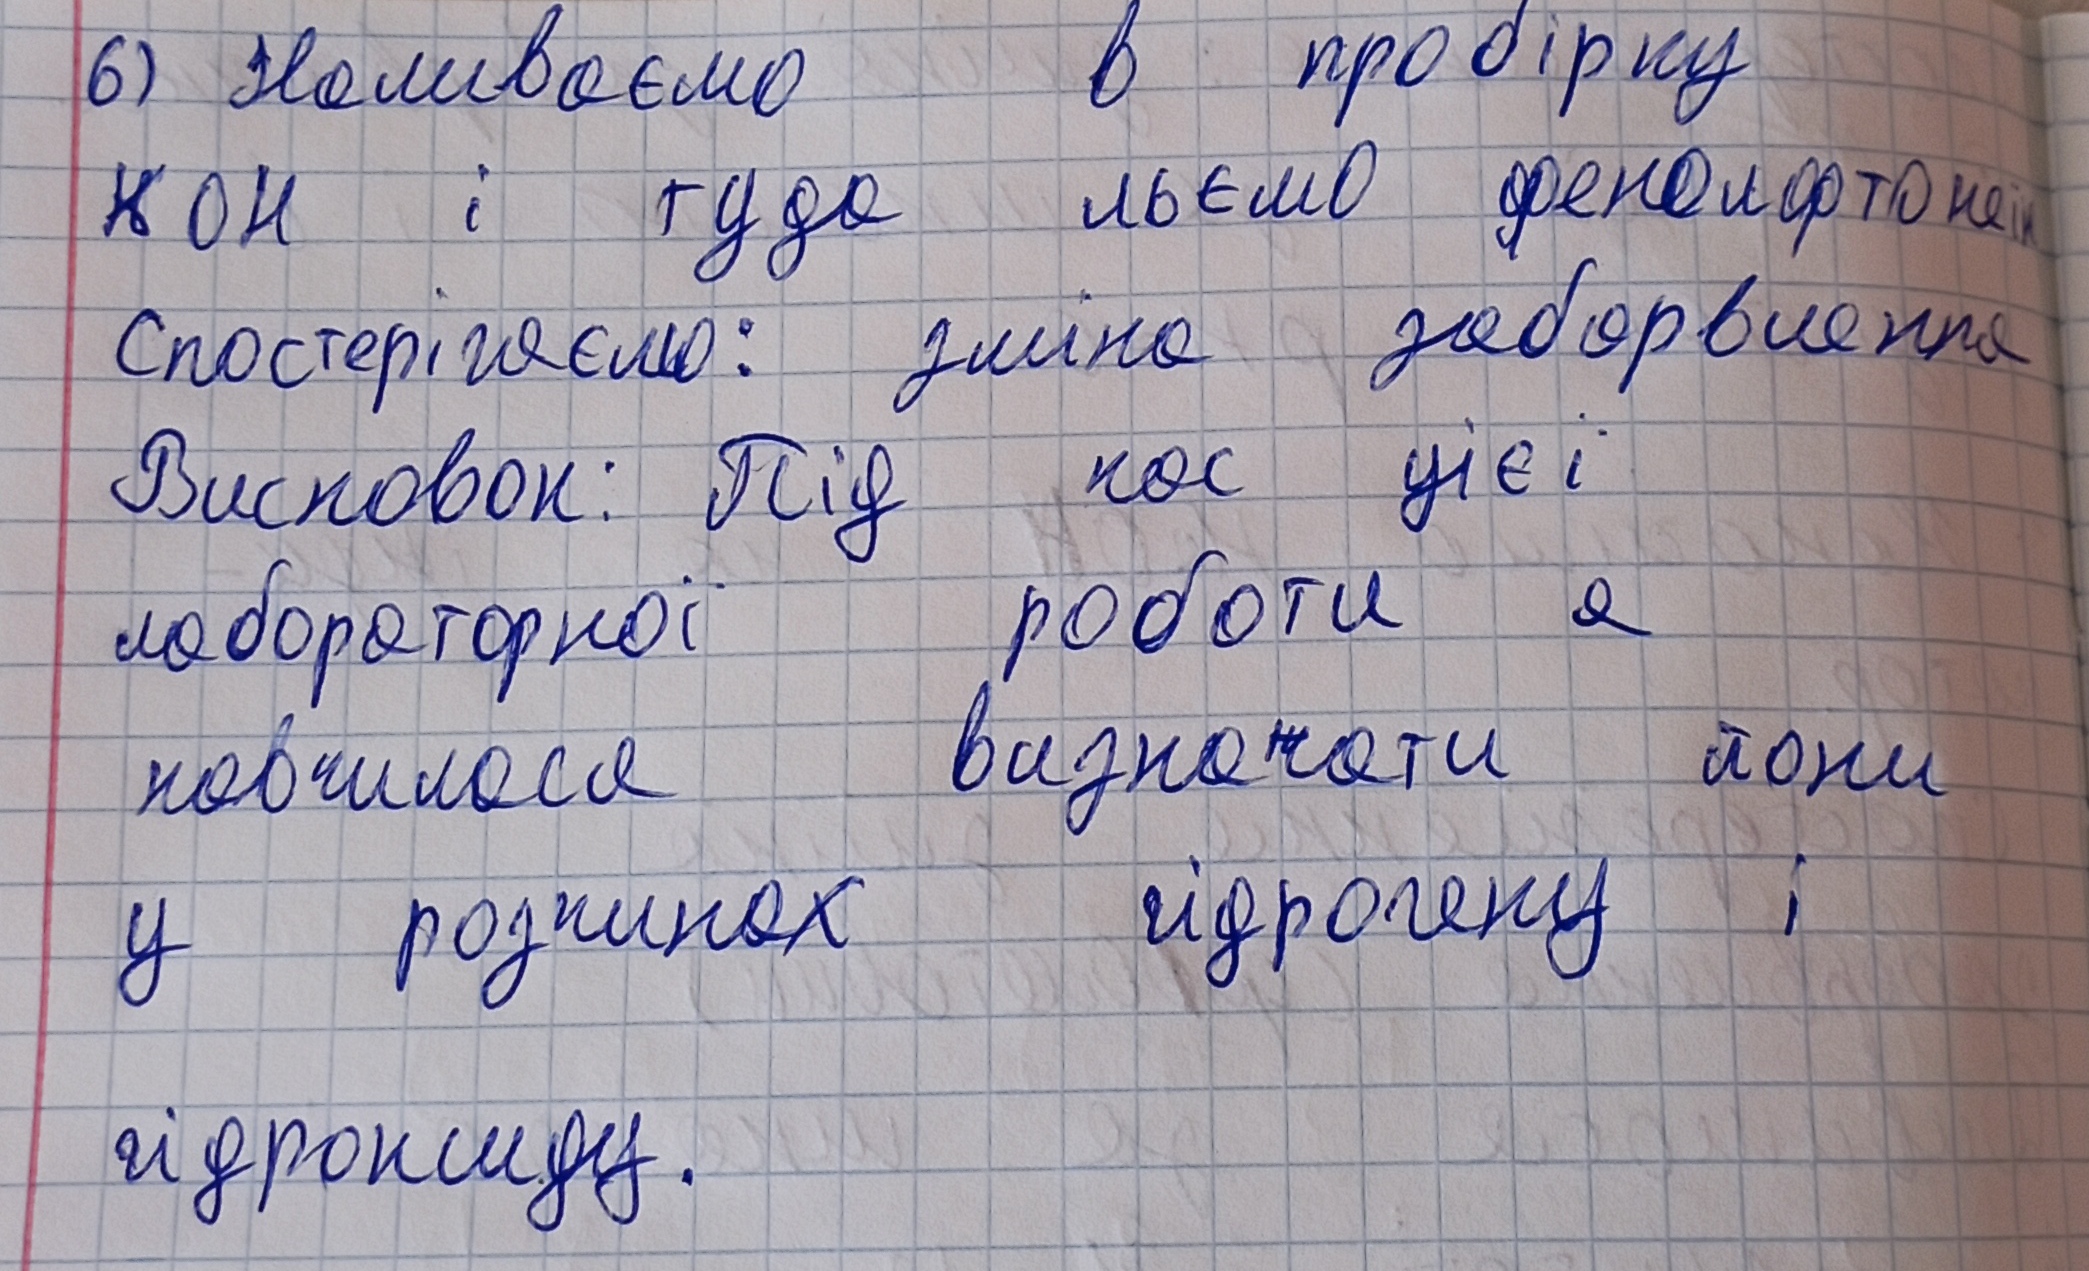 6) Наливаємо в пробірку
KOH і туда льємо фенолфтонеін
Спостерігаємо: зміна заборвлення
Висновок: Під час цієї
лабораторної роботи я
навчилася визначати йони
у розчинах гідрогену і
гідроксиду.